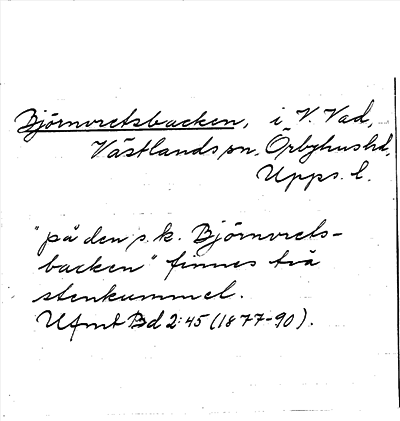 Björnvretsbacken, i V. Vad,
Västlands sn. Örbyhus hd.
Upps. l.
"på den s.k. Björnvrets-
backen" finnes två
stenkummel.
Ufmt Bd 2:45 (1877-90).